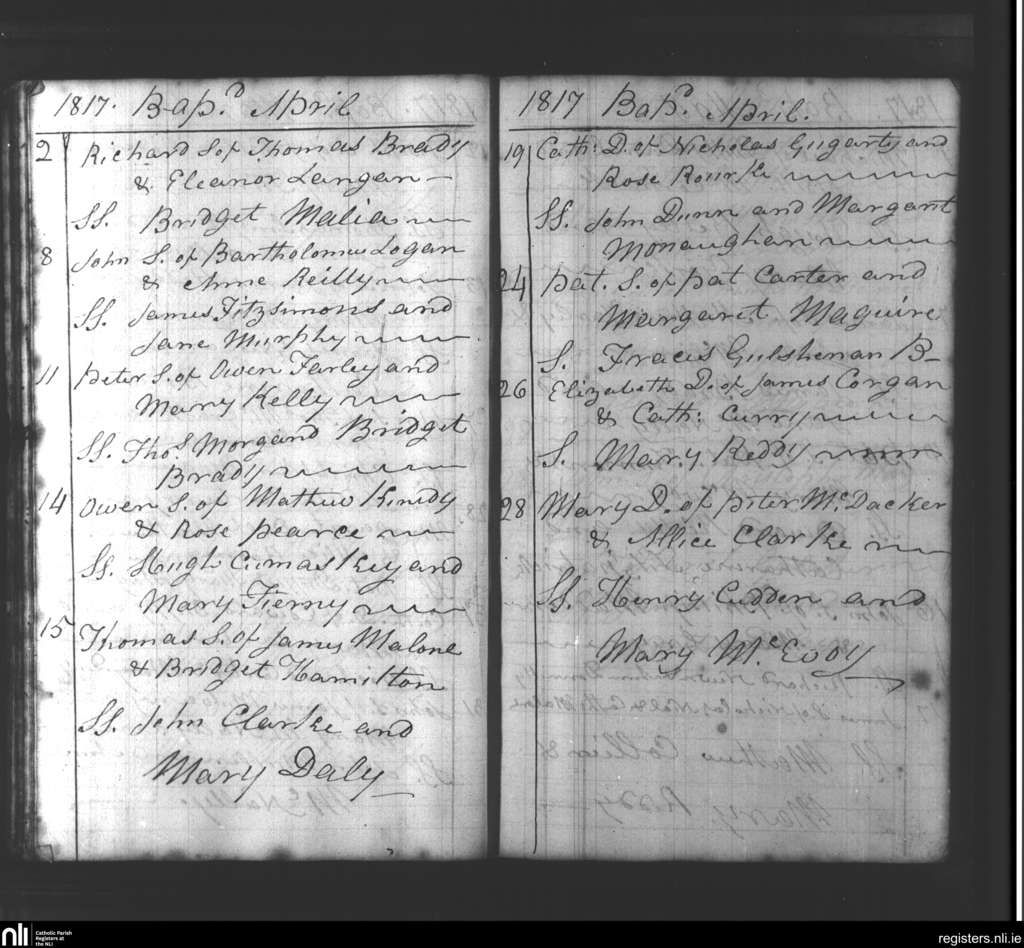 1817. Bap.d April
2 Richard S of Thomas Brady
& Eleanor Langan
SS. Bridget Malia
8 John S. of Bartholomew Logan
& Anne Reilly
SS. James Fitzsimons and
Jane Murphy
11 Peter S. of Owen Farley and
Mary Kelly
SS. Tho.s Morgan d Bridget
Brady
14 Owen S. of Mathew
& Rose Pearce
SS. Hugh Cumaskey and
Mary Tierny
15 Thomas S. of James Malone
& Bridget Hamilton
SS. John Clarke and
Mary Daly
1817 Bap.d April.
19 Cath: D. of Nicholas Gugarty and
Rose Rourke
SS. John Dunn and Margaret
Monaughan
24 Pat. S. of Pat Carter and
Margaret Maguire
S. Fracis Gulshenan B-
26 Elizabeth D. of James Corgan
& Cath: Curry
S. Mary Reddy
28 Mary D. of Piter Mc.Dacker
& Allice Clarke
SS. Henry Cudden and
Mary Mc.Evoy
nli Catholic Parish
Registers at
the NLI
registers.nli.ie